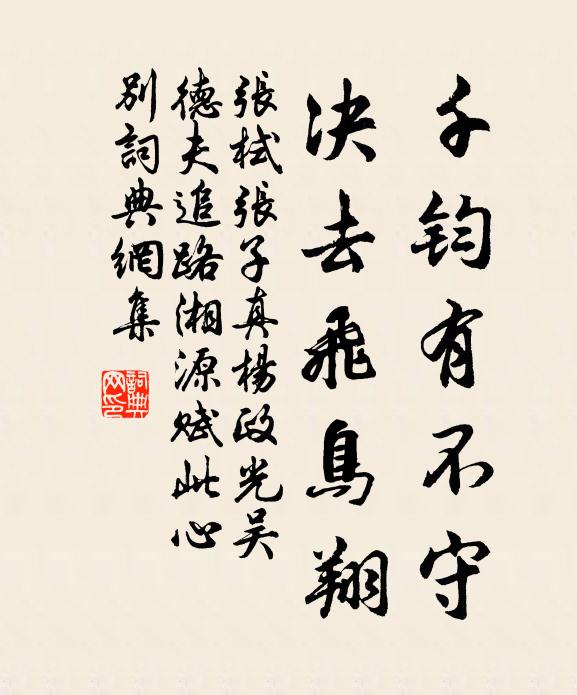 千鈞有不守
决去飛鳥翔
張栻張子真楊政光吴
德夫追路湘源賦此心
别詞典網集
詞典
网印